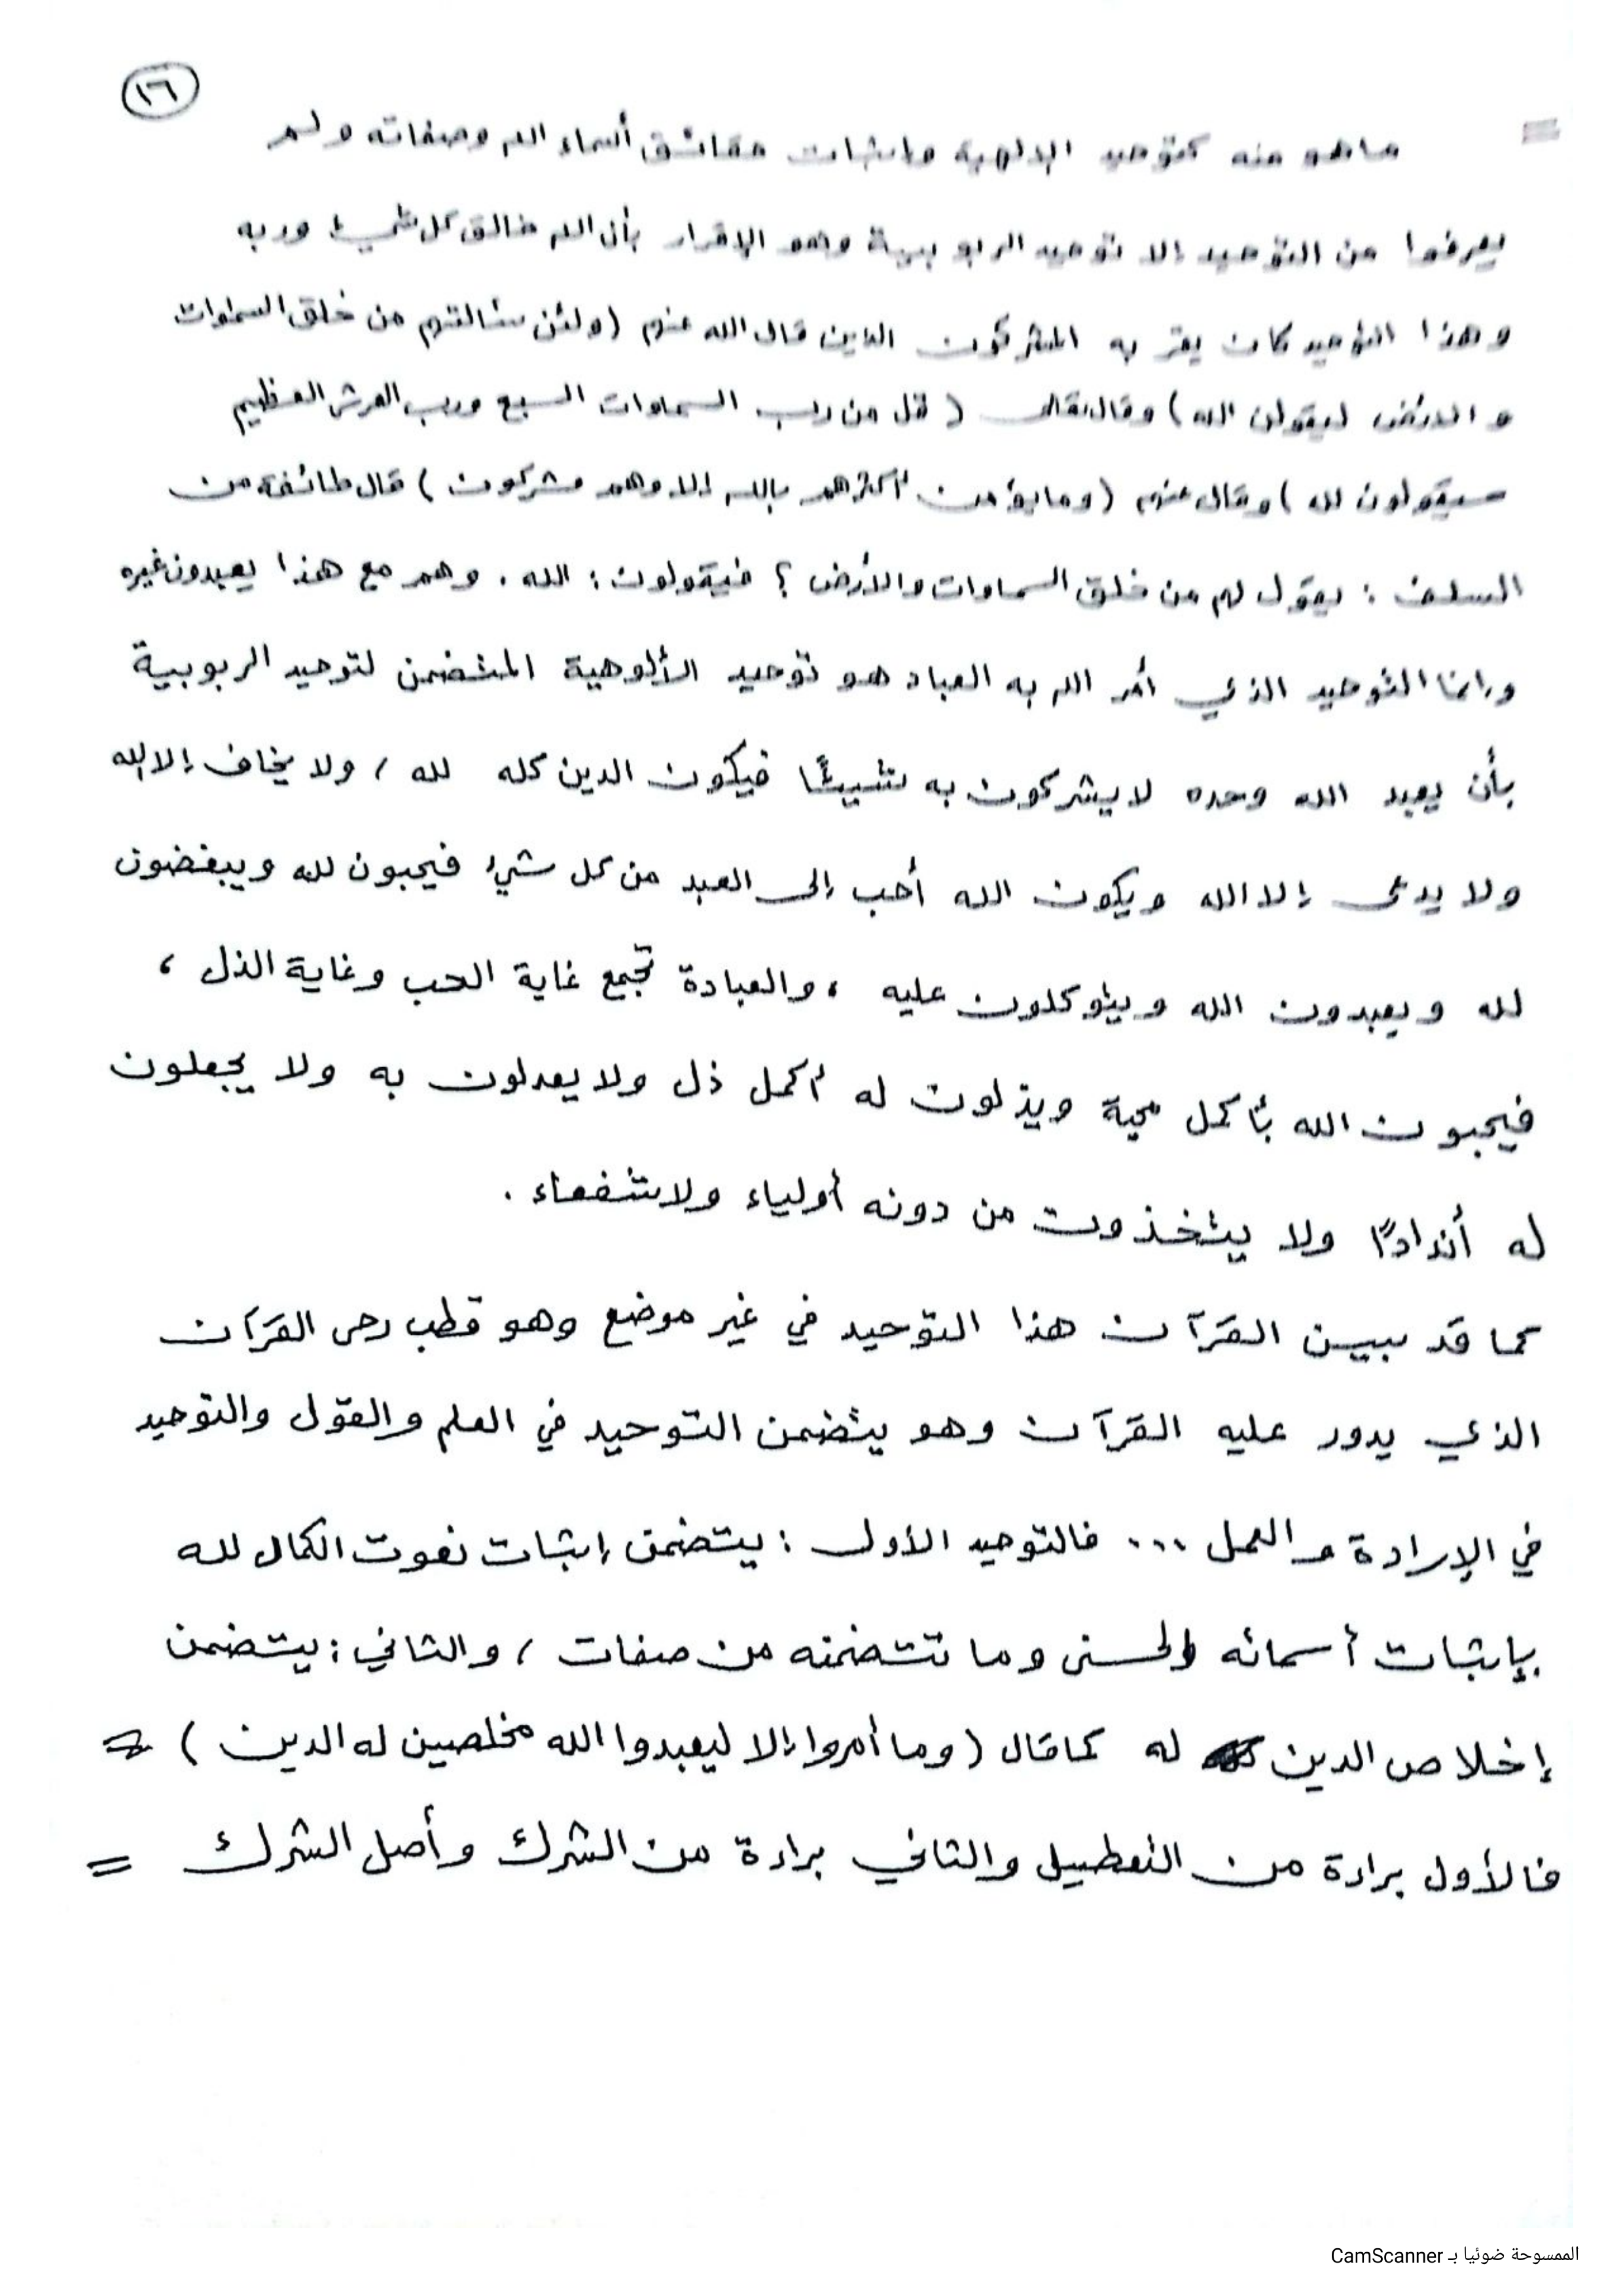 ١٦
= ما هو منه كتوحيد الإلهية وإثبات حقائق أسماء الله وصفاته ولم
يعرفوا من التوحيد إلا توحيد الربوبية وهو الإقرار بأن الله خالق كل شيء وربه
وهذا التوحيد كان يقر به المشركون الذين قال الله عنهم (ولئن سألتهم من خلق السموات
والأرض ليقولن الله) وقال تعالى (قل من رب السماوات السبع ورب العرش العظيم
سيقولون لله) وقال عنهم (وما يؤمن أكثرهم بالله إلا وهم مشركون) قال طائفة من
السلف : يقول لهم من خلق السماوات والأرض ؟ فيقولون : الله . وهم مع هذا يعبدون غيره
وإنما التوحيد الذي أمر الله به العباد هو توحيد الألوهية المتضمن لتوحيد الربوبية
بأن يعبد الله وحده لا يشركون به شيئًا فيكون الدين كله لله ، ولا يخاف إلا الله
ولا يدعى إلا الله ويكون الله أحب إلى العبد من كل شيء فيحبون لله ويبغضون
لله ويعبدون الله ويتوكلون عليه ، والعبادة تجمع غاية الحب وغاية الذل ،
فيحبون الله بأكمل محبة ويذلون له أكمل ذل ولا يعدلون به ولا يجعلون
له أندادًا ولا يتخذون من دونه أولياء ولا شفعاء .
كما قد بين القرآن هذا التوحيد في غير موضع وهو قطب رحى القرآن
الذي يدور عليه القرآن وهو يتضمن التوحيد في العلم والقول والتوحيد
في الإرادة والعمل ... فالتوحيد الأول : يتضمن إثبات نعوت الكمال لله
بإثبات أسمائه الحسنى وما تتضمنه من صفات ، والثاني : يتضمن
إخلاص الدين له كما قال (وما أمروا إلا ليعبدوا الله مخلصين له الدين) =
فالأول براءة من التعطيل والثاني براءة من الشرك وأصل الشرك =
الممسوحة ضوئيا بـ CamScanner